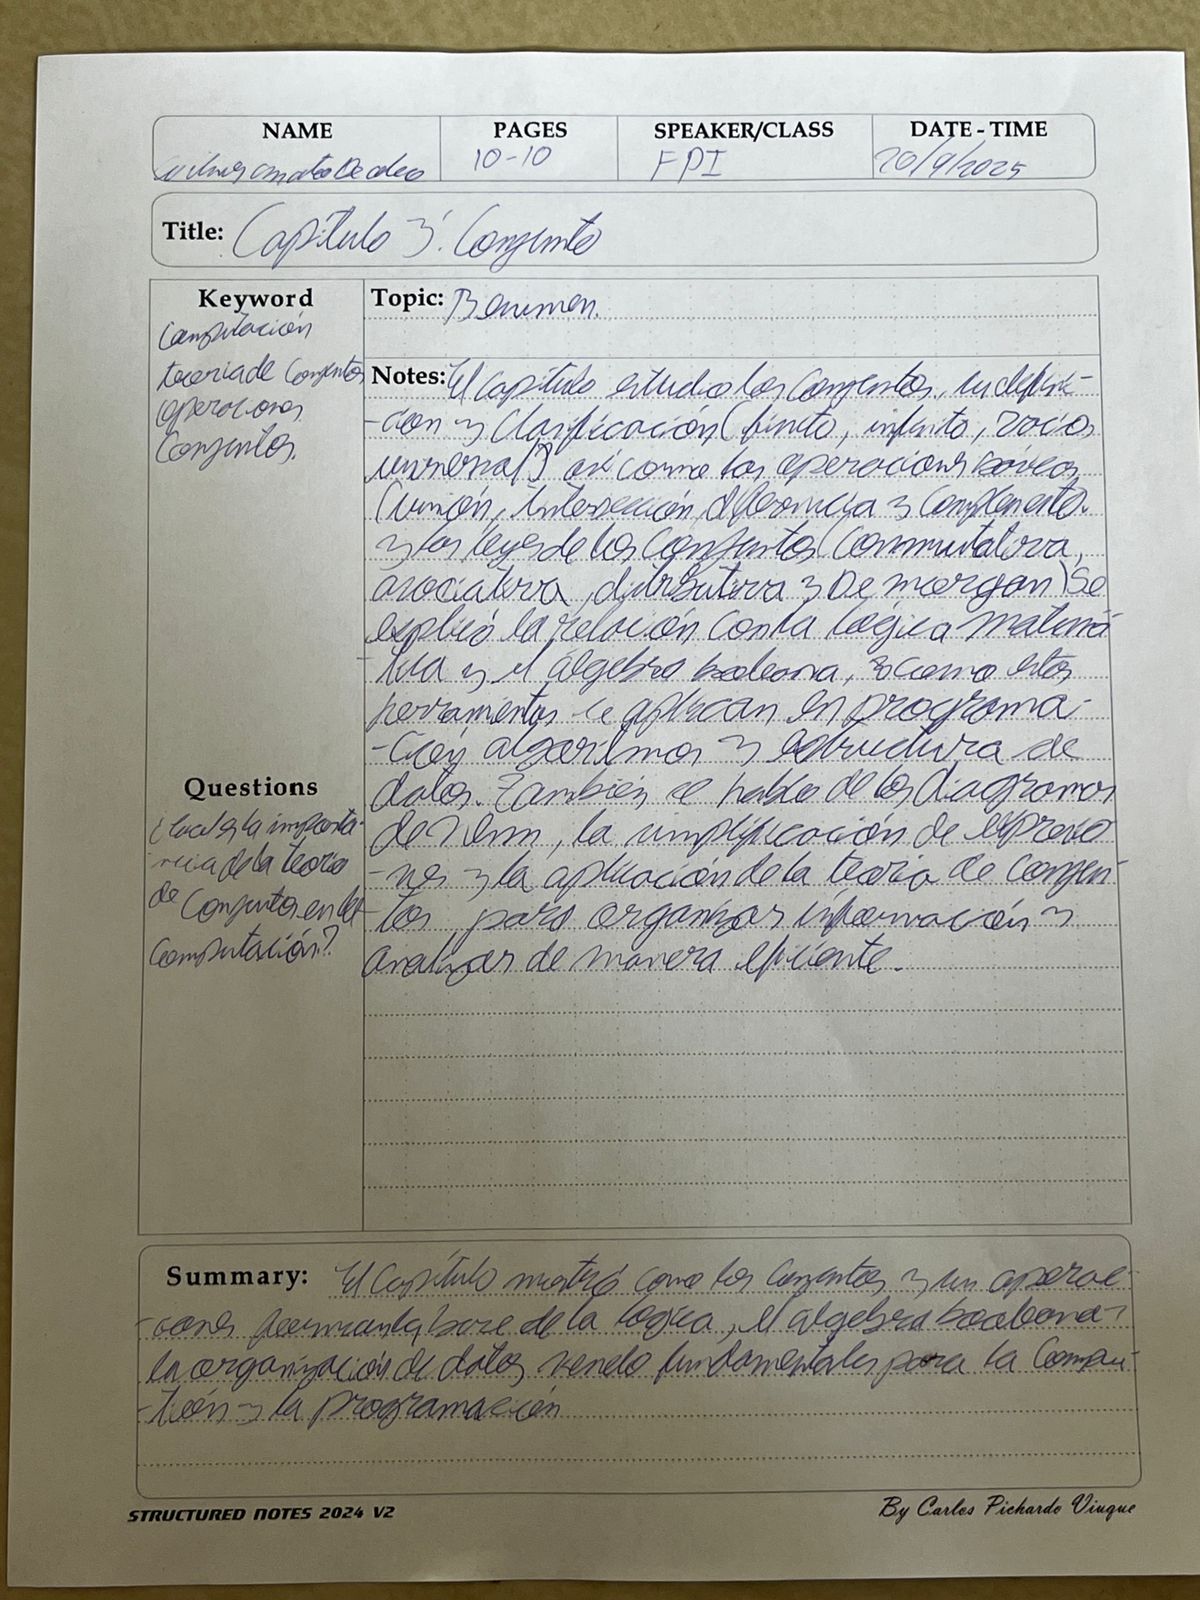 NAME PAGES SPEAKER/CLASS DATE - TIME
10-10 FPI 20/9/2025
Title: Capítulo 3: Conjunto
Keyword
Computación
teoria de Conjuntos
operaciones
Conjuntos.
Topic: Resumen.
Notes: El Capítulo estudio los Conjuntos, su defini-
-cion y Clasificación (finito, infinito, vacio,
universal) así como las operaciones básicas
(unión, Intersección, diferencia y Complemento.
y las leyes de los Conjuntos (Conmutativa,
asociativa, distributiva y De morgan) Se
explicó la relación con la lógica matemá
-tica y el álgebra booleana, y como estas
herramientas se aplican en programa-
-ción algoritmos y estructura de
datos. También se hablo de los diagramas
de Venn, la simplificación de expresio
-nes y la aplicación de la teoria de conjun-
-tos para organizar información y
analizar de manera eficiente.
Questions
¿Cual es la importa-
-ncia de la teoria
de Conjuntos en la
Computación?
Summary: El Capítulo mostró como los Conjuntos y sus operac-
-iones forman la base de la logica, el algebra booleana y
la organización de datos, siendo fundamentales para la Compu-
-tión y la programación
STRUCTURED NOTES 2024 V2
By Carlos Pichardo Viuque